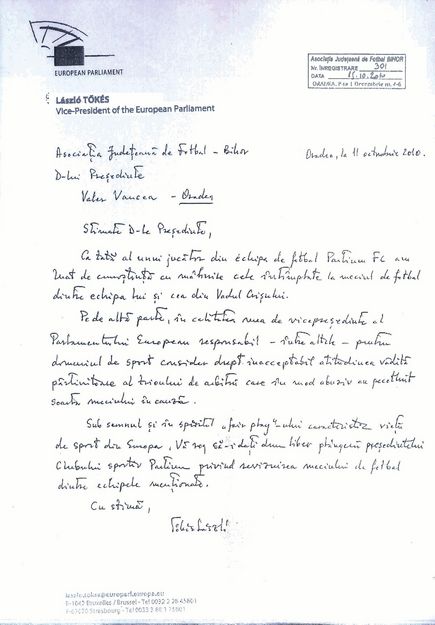 EUROPEAN PARLIAMENT
Asociația Județeană de Fotbal BIHOR
Nr. ÎNREGISTRARE 301
DATA 15.10.2010
ORADEA,
László TŐKÉS
Vice-President of the European Parliament
Asociația Județeană de Fotbal - Bihor
Oradea, la 11 octombrie 2010.
D-lui Președinte
Valer Vancea - Oradea
Stimate D-le Președinte,
Ca tată al unui jucător din echipa de fotbal Partium FC am
luat de cunoștință cu mâhnire cele întâmplate la meciul de fotbal
dintre echipa lui și cea din Vadul Crișului.
Pe de altă parte, în calitatea mea de vicepreședinte al
Parlamentului European responsabil - între altele - pentru
domeniul de sport consider drept inacceptabil atitudinea vădită
părtinitoare al trioului de arbitri care în mod abuziv au pecetluit
soarta meciului în cauză.
Sub semnul și în spiritul „fair play"-ului caracteristic vieții
de sport din Europa, Vă rog să-i dați drum liber plângerii președintelui
Clubului sportiv Partium privind revizuirea meciului de fotbal
dintre echipele menționate.
Cu stimă,
Tőkés László
laszlo.tokes@europarl.europa.eu
B-1047 Bruxelles / Brussel - Tel 0032 2 28 45801
F-67070 Strasbourg - Tel 0033 3 88 1 75801